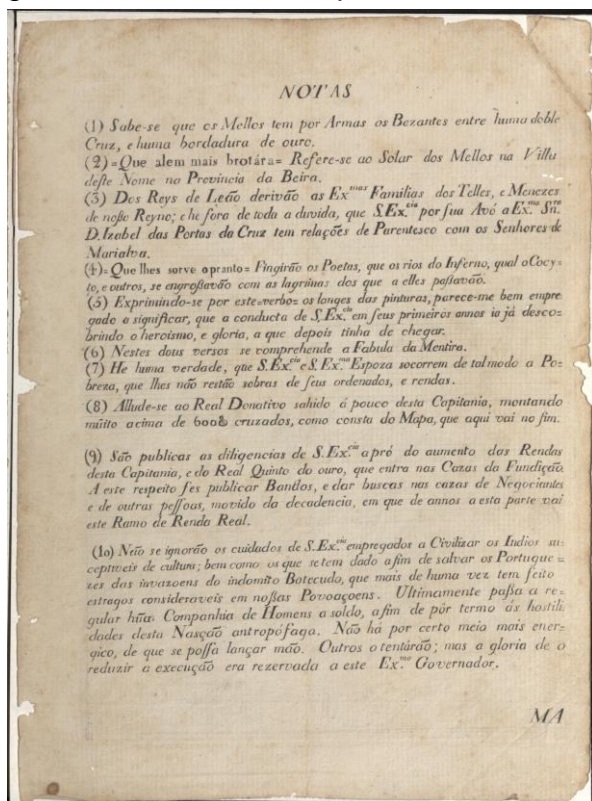 NOTAS
(1) Sabe-se que os Mellos tem por Armas os Bezantes entre huma doble
Cruz, e huma bordadura de ouro.
(2)=Que alem mais brotára= Refere-se ao Solar dos Mellos na Villa
deſte Nome na Provincia da Beira.
(3) Dos Reys de Leão derivão as Ex.mas Familias dos Telles, e Menezes
de noſſo Reyno; e he fora de toda a duvida, que S.Ex.cia por ſua Avó a Ex.ma Sn.ra
D. Izabel das Portas da Cruz tem relações de Parentesco com os Senhores de
Marialva.
(4)=Que lhes sorve o pranto= Fingirão os Poetas, que os rios do Inferno, qual o Cocy=
to, e outros, se engroſſavão com as lagrimas dos que a elles paſſavão.
(5) Exprimindo-se por este=verbo= os longes das pinturas, parece-me bem empre
gado a significar, que a conducta de S.Ex.cia em ſeus primeiros annos ia já desco=
brindo o heroismo, e gloria, a que depois tinha de chegar.
(6) Nestes dous versos se comprehende a Fabula da Mentira.
(7) He huma verdade, que S.Ex.cia e S.Ex.ma Espoza socorrem de tal modo a Po=
breza, que lhes não restão sobras de ſeus ordenados, e rendas.
(8) Allude-se ao Real Donativo sahido á pouco desta Capitania, montando
muito acima de 600$ cruzados, como consta do Mapa, que aqui vai no fim.
(9) São publicas as diligencias de S.Ex.cia a pró do aumento das Rendas
desta Capitania, e do Real Quinto do ouro, que entra nas Cazas da Fundição.
A este respeito fes publicar Bandos, e dar buscas nas cazas de Negociantes
e de outras peſſoas, movido da decadencia, em que de annos a esta parte vai
este Ramo de Renda Real.
(10) Não se ignorão os cuidados de S.Ex.cia empregados a Civilizar os Indios su=
ceptiveis de cultura; bem como os que se tem dado a fim de salvar os Portugue=
zes das invazoens do indomito Botecudo, que mais de huma vez tem feito
estragos consideraveis em noſſas Povoaçoens. Ultimamente paſſa a re=
gular hũa Companhia de Homens a soldo, a fim de pôr termo ás hostili
dades desta Nasção antropófaga. Não há por certo meio mais ener=
gico, de que se poſſa lançar mão. Outros o tentárão; mas a gloria de o
reduzir a execução era rezervada a este Ex.mo Governador.
MA